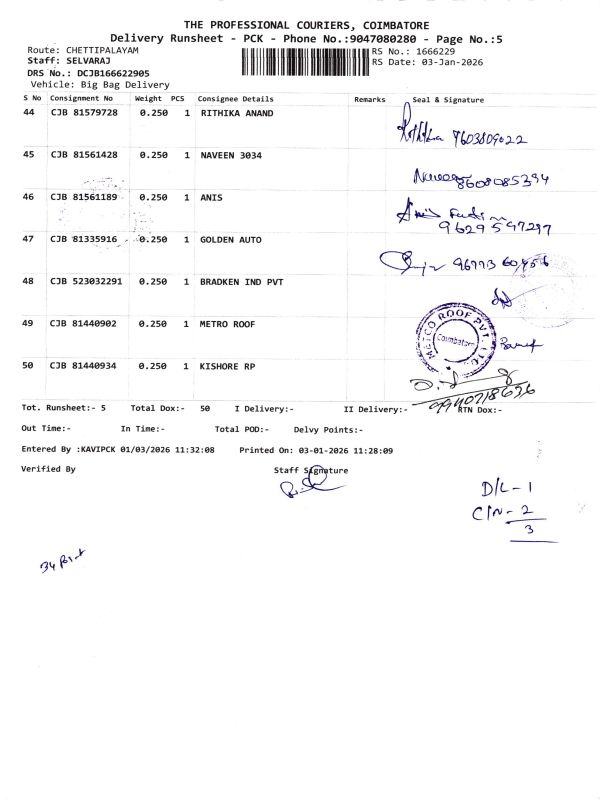 THE PROFESSIONAL COURIERS, COIMBATORE
Delivery Runsheet - PCK - Phone No.:9047080280 - Page No.:5
Route: CHETTIPALAYAM RS No.: 1666229
Staff: SELVARAJ RS Date: 03-Jan-2026
DRS No.: DCJB166622905
Vehicle: Big Bag Delivery
S No Consignment No Weight PCS Consignee Details Remarks Seal & Signature
44 CJB 81579728 0.250 1 RITHIKA ANAND
Rithika 9603809022
45 CJB 81561428 0.250 1 NAVEEN 3034
Naveen 8608085394
46 CJB 81561189 0.250 1 ANIS
Anis
9629547297
47 CJB 81335916 0.250 1 GOLDEN AUTO
48 CJB 523032291 0.250 1 BRADKEN IND PVT
49 CJB 81440902 0.250 1 METRO ROOF
METCO ROOF PVT. LTD.
Coimbatore
50 CJB 81440934 0.250 1 KISHORE RP
9940718636
Tot. Runsheet:- 5 Total Dox:- 50 I Delivery:- II Delivery:- RTN Dox:-
Out Time:- In Time:- Total POD:- Delvy Points:-
Entered By :KAVIPCK 01/03/2026 11:32:08 Printed On: 03-01-2026 11:28:09
Verified By Staff Signature
D/L - 1
C/N - 2
3
34